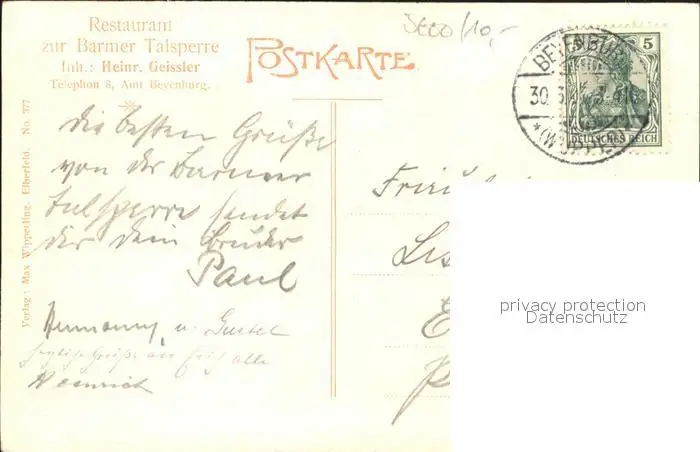 Restaurant
zur Barmer Talsperre
Inh.: Heinr. Geissler
Telephon 8, Amt Beyenburg.
POSTKARTE
5
DEUTSCHES REICH
BEYENBURG
30.3.
Verlag: Max Wipperling, Elberfeld. No. 377
Die besten Grüße
von der Barmer
Talsperre sendet
dir dein Bruder
Paul
Hermann u. Gustel
herzliche Grüße an Euch alle
Heinrich
privacy protection
Datenschutz